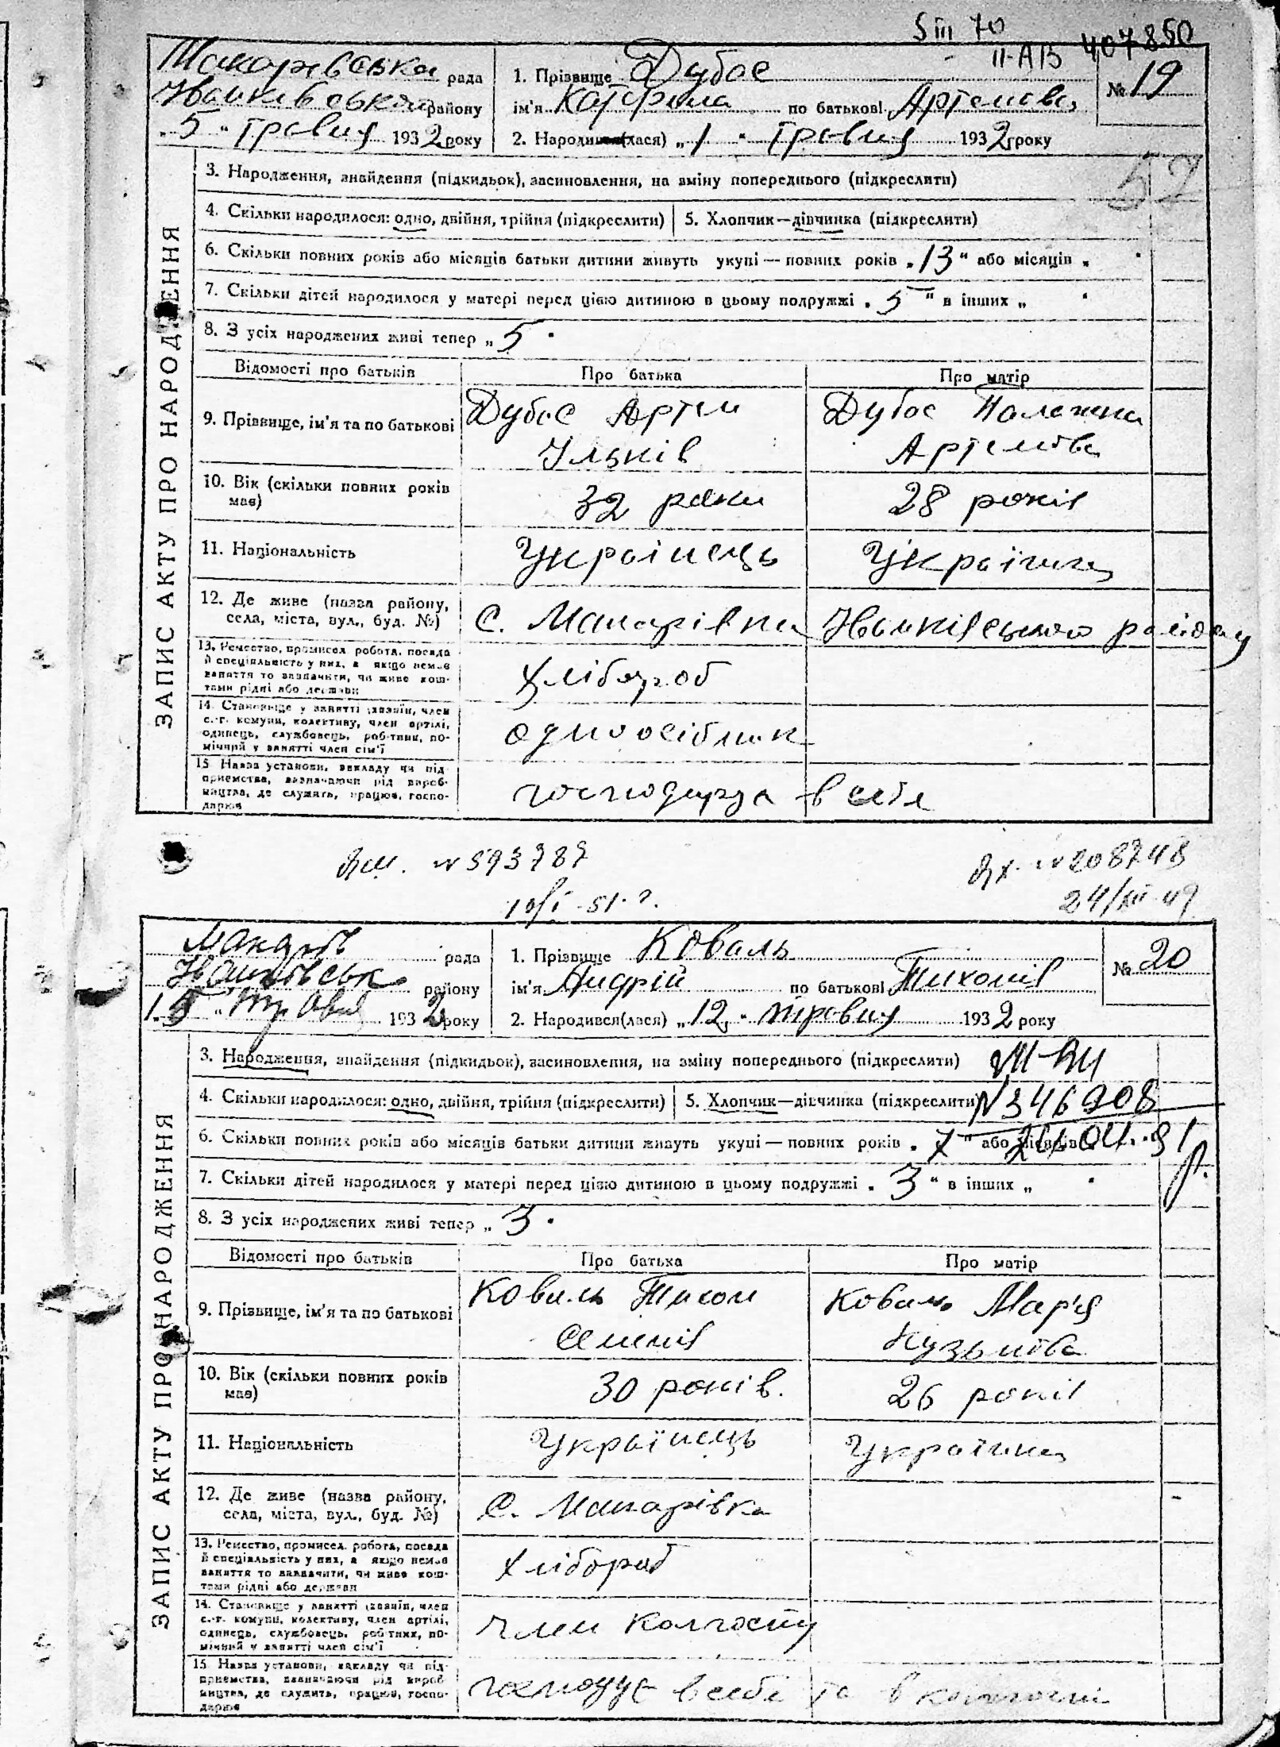 S III 70
II-АВ 407850
Макарівська рада
Іванківського району
„5“ травня 1932 року
1. Прізвище Дубас
ім'я Катерина по батькові Артемова
2. Народився(лася) „1“ травня 1932 року
№ 19
52
ЗАПИС АКТУ ПРО НАРОДЖЕННЯ
3. Народження, знайдення (підкидьок), засиновлення, на зміну попереднього (підкреслити)
4. Скільки народилося: одно, двійня, трійня (підкреслити) 5. Хлопчик—дівчинка (підкреслити)
6. Скільки повних років або місяців батьки дитини живуть укупі — повних років „13“ або місяців „
7. Скільки дітей народилося у матері перед цією дитиною в цьому подружжі „5“ в інших „
8. З усіх народжених живі тепер „5“
Відомості про батьків Про батька Про матір
9. Прізвище, ім'я та по батькові Дубас Артем Ільків Дубас Палажка Артемова
10. Вік (скільки повних років має) 32 роки 28 років
11. Національність Українець Українка
12. Де живе (назва району, села, міста, вул., буд. №) с. Макарівка Іванківського району
13. Ремество, промисел, робота, посада й спеціальність у них, а якщо немає заняття то зазначити, чи живе коштами рідні або держави хлібороб
14. Становище у занятті (хазяїн, член с.-г. комуни, колективу, член артілі, одинець, службовець, робітник, помічний у занятті член сім'ї одноосібник
15 Назва установи, закладу чи підприємства, зазначаючи рід виробництва, де служить, працює, господарює господарює в себе
№ 593787
10/I-51 г.
№ 208748
24/XII-49
Макарів рада
Іванківськ району
15 „травня 1932 року
1. Прізвище Коваль
ім'я Андрій по батькові Тихонів
2. Народився(лася) „12“ травня 1932 року
№ 20
ЗАПИС АКТУ ПРО НАРОДЖЕННЯ
3. Народження, знайдення (підкидьок), засиновлення, на зміну попереднього (підкреслити)
4. Скільки народилося: одно, двійня, трійня (підкреслити) 5. Хлопчик—дівчинка (підкреслити) N 346908
6. Скільки повних років або місяців батьки дитини живуть укупі — повних років „7“ або місяців
7. Скільки дітей народилося у матері перед цією дитиною в цьому подружжі „3“ в інших „
8. З усіх народжених живі тепер „3“
Відомості про батьків Про батька Про матір
9. Прізвище, ім'я та по батькові Коваль Тихон Семенів Коваль Мар'я Кузьмова
10. Вік (скільки повних років має) 30 років. 26 років
11. Національність Українець Українка
12. Де живе (назва району, села, міста, вул., буд. №) с. Макарівка
13. Ремество, промисел, робота, посада й спеціальність у них, а якщо немає заняття то зазначити, чи живе коштами рідні або держави хлібороб
14. Становище у занятті (хазяїн, член с.-г. комуни, колективу, член артілі, одинець, службовець, робітник, помічний у занятті член сім'ї член колгоспу
15 Назва установи, закладу чи підприємства, зазначаючи рід виробництва, де служить, працює, господарює господарює в себе та в колгоспі